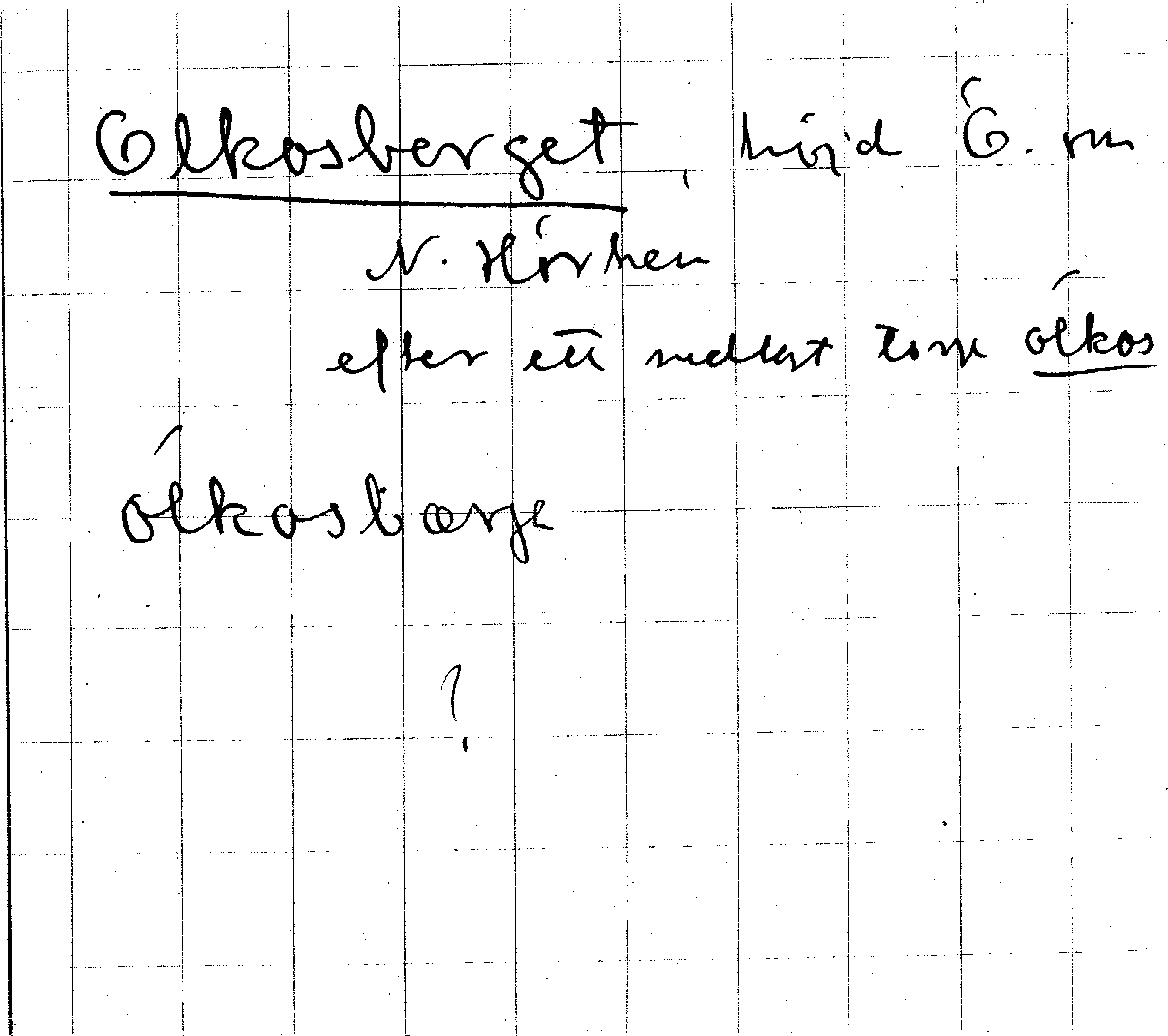 Olkosberget, höjd Ö. om
N. Hörken
efter ett nedlagt torp olkos
ólkosbærje
?